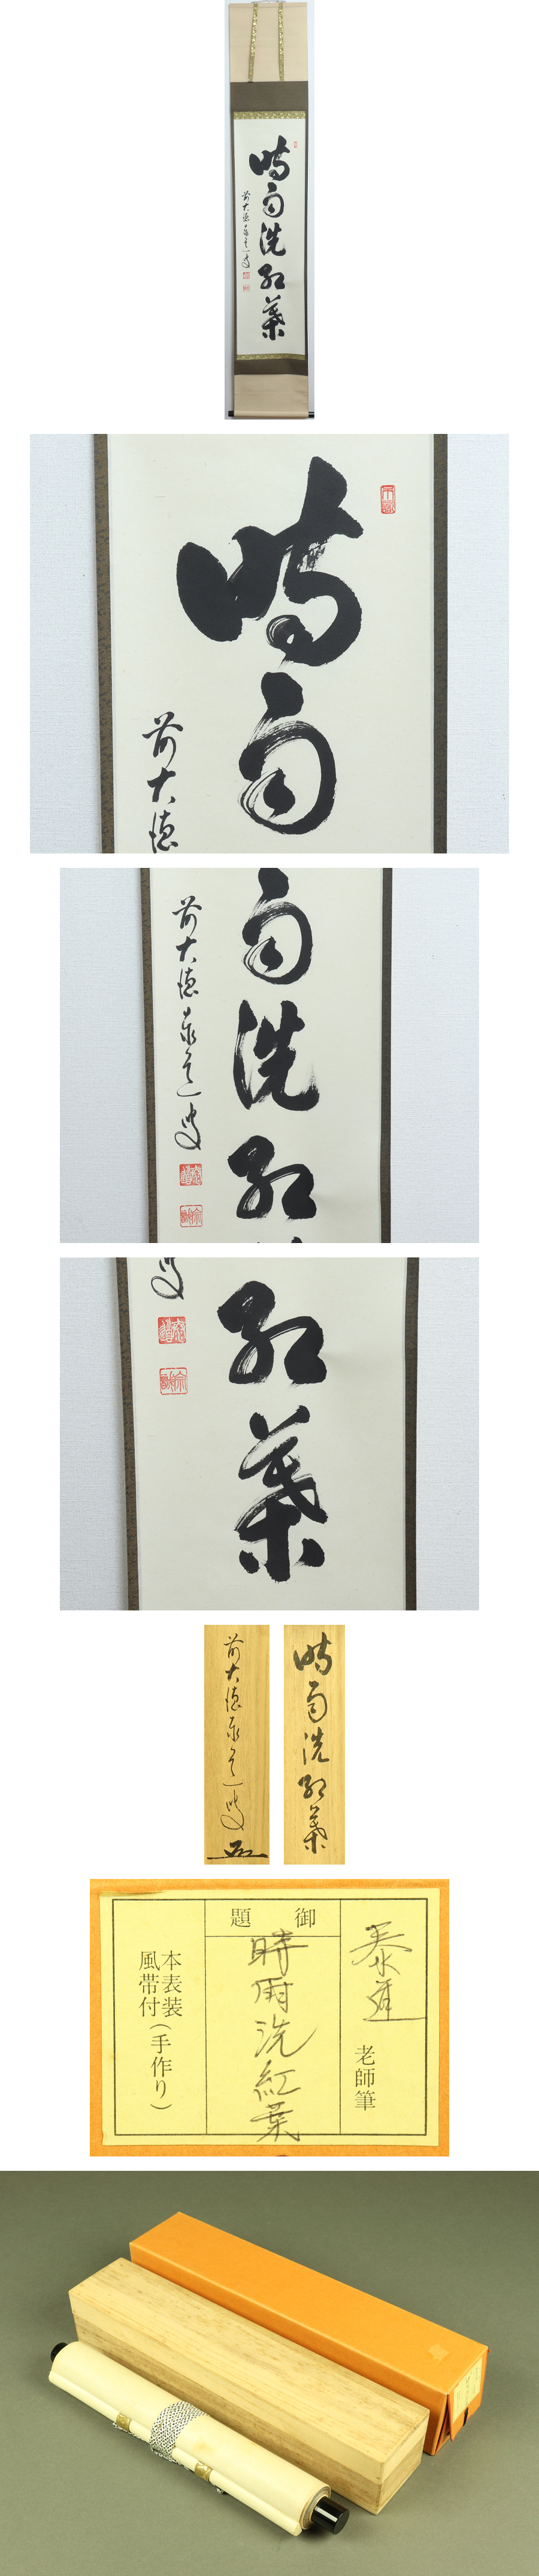 時雨洗紅葉
前大徳泰道叟
時雨
前大徳
雨洗紅
前大徳泰道叟
紅葉
叟
前大徳泰道叟
時雨洗紅葉
泰道 老師筆
御題
時雨洗紅葉
本表装
風帯付(手作り)